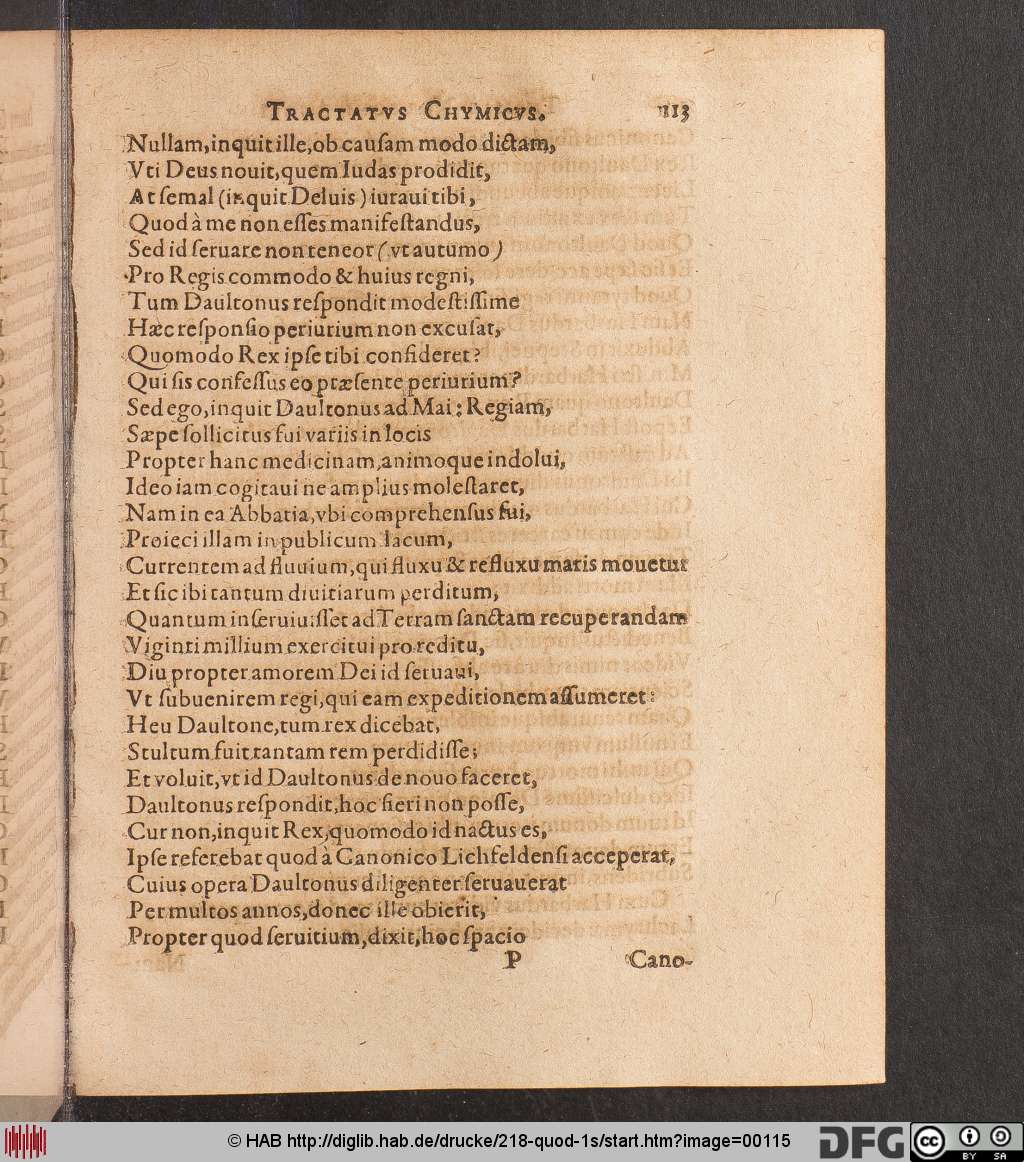 TRACTATVS CHYMICVS. 113
Nullam, inquit ille, ob cauſam modo dictam,
Vti Deus nouit, quem Iudas prodidit,
At ſemal (inquit Deluis) iuraui tibi,
Quod à me non eſſes manifeſtandus,
Sed id ſeruare non teneor (vt autumo)
Pro Regis commodo & huius regni,
Tum Daultonus reſpondit modeſtiſſime
Hæc reſponſio periurium non excuſat,
Quomodo Rex ipſe tibi confideret?
Qui ſis confeſſus eo præſente periurium?
Sed ego, inquit Daultonus ad Mai: Regiam,
Sæpe ſollicitus fui variis in locis
Propter hanc medicinam, animoque indolui,
Ideo iam cogitaui ne amplius moleſtaret,
Nam in ea Abbatia, vbi comprehenſus fui,
Proieci illam in publicum lacum,
Currentem ad fluuium, qui fluxu & refluxu maris mouetur
Et ſic ibi tantum diuitiarum perditum,
Quantum inſeruiuiſſet ad Terram ſanctam recuperandam
Viginti millium exercitui pro reditu,
Diu propter amorem Dei id ſeruaui,
Vt ſubuenirem regi, qui eam expeditionem aſſumeret:
Heu Daultone, tum rex dicebat,
Stultum fuit tantam rem perdidiſſe;
Et voluit, vt id Daultonus de nouo faceret,
Daultonus reſpondit, hoc fieri non poſſe,
Cur non, inquit Rex, quomodo id nactus es,
Ipſe referebat quod à Canonico Lichfeldenſi acceperat,
Cuius opera Daultonus diligenter ſeruauerat
Per multos annos, donec ille obierit,
Propter quod ſeruitium, dixit, hoc ſpacio
P Cano-
© HAB http://diglib.hab.de/drucke/218-quod-1s/start.htm?image=00115
DFG
cc
BY SA